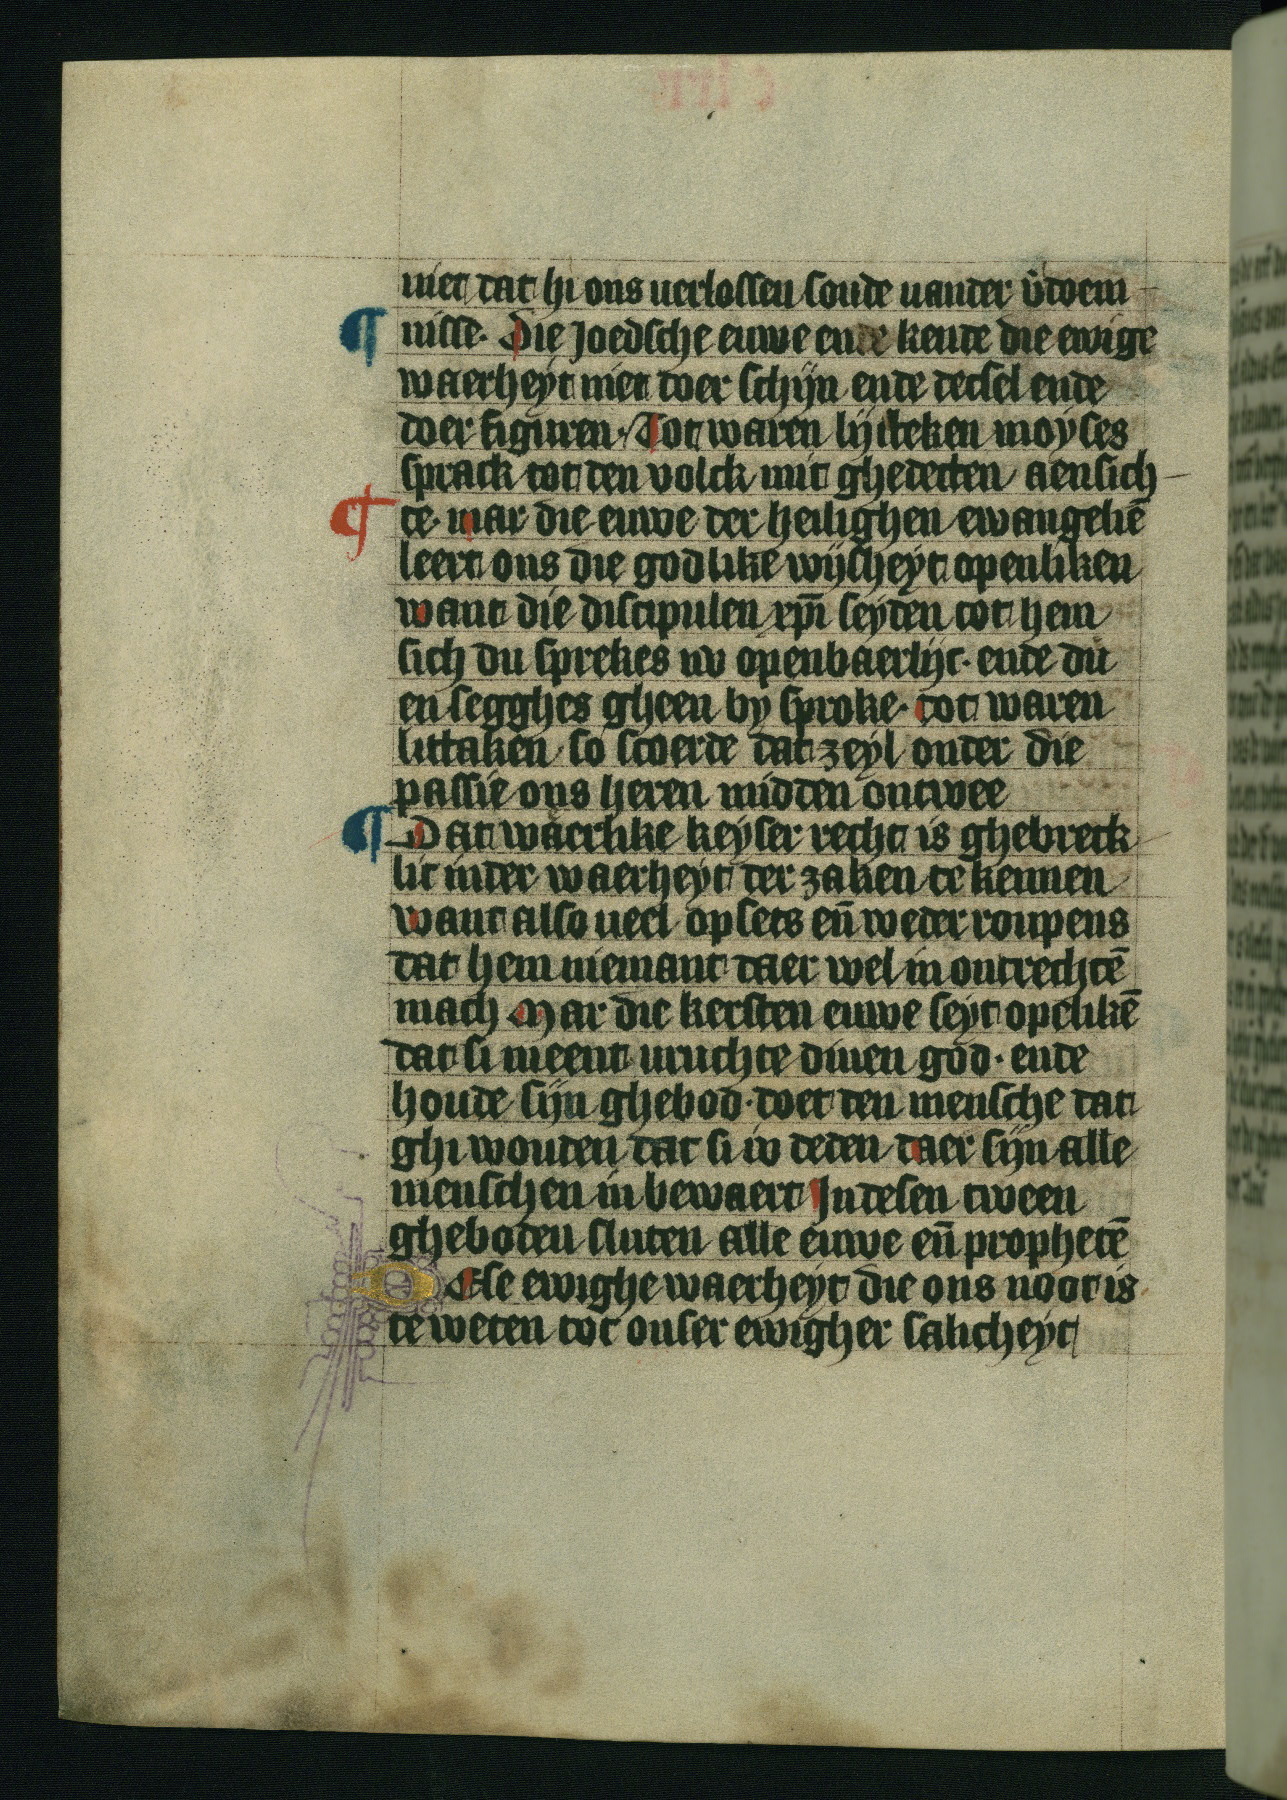 niet dat hi ons verlossen soude vander v̾doem
nisse. Die joedsche euwe ende kende die ewige
waerheyt niet doer schijn ende decsel ende
doer figuren. Tot waren lijcteken moyses
sprack tot den volck mit ghedecten aensich
te. mar die euwe der heilighen ewangeliē
leert ons die godlike wijsheyt openliken
want die discipulen xp̄i seyden tot hem
sich du sprekes nv openbaerlijc. ende du
en segghes gheen by sproke. tot waren
littaken so scoerde dat zeyl onder die
passie ons heren midden ontwee
¶ Dat waerlike keyser recht is ghebreck
lic inder waerheyt der zaken te kennen
want also veel opsets en̄ weder roupens
dat hem niemant daer wel in ontrechtē
mach Mar die kersten euwe seyt opelikē
dat si meent vruchte dinen god. ende
houde sijn ghebod. doet den mensche dat
ghi wouden dat si iv deden daer sijn alle
menschen in bewaert Jn desen tween
gheboden sluten alle euwe en̄ prophetē
Dese ewighe waerheyt die ons noot is
te weten tot onser ewigher salicheyt